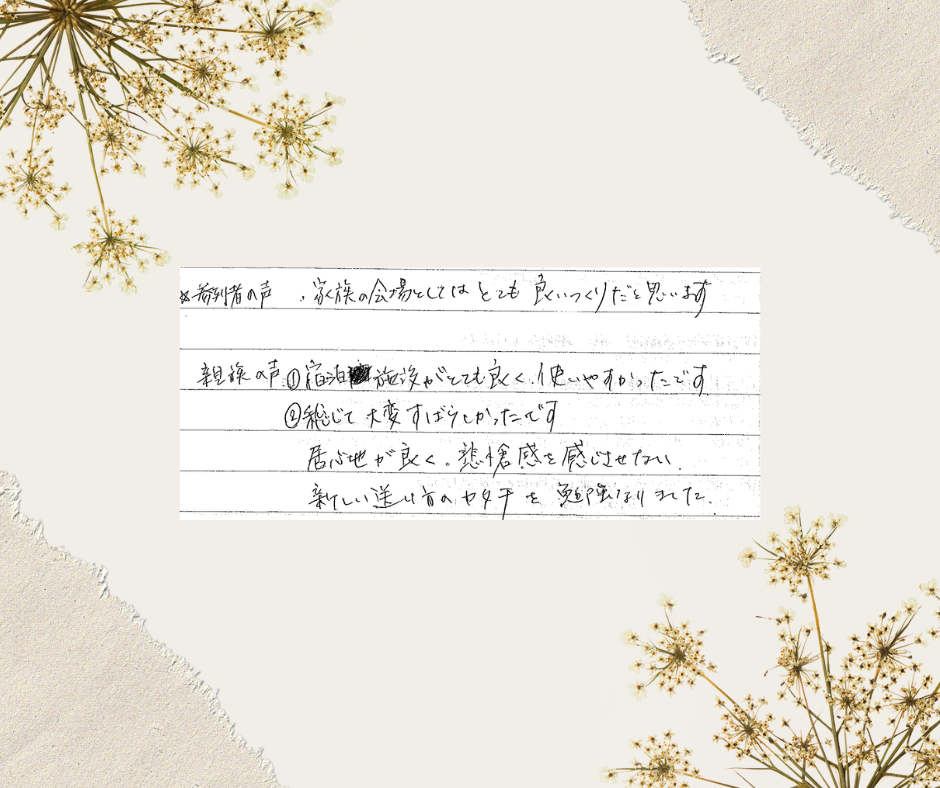 ※参列者の声 ・家族の会場としてはとても良いつくりだと思います
親族の声 ①宿泊施設がとても良く、使いやすかったです
②総じて大変すばらしかったです
居心地が良く、悲愴感を感じさせない、
新しい送り方のカタチを勉強になりました。